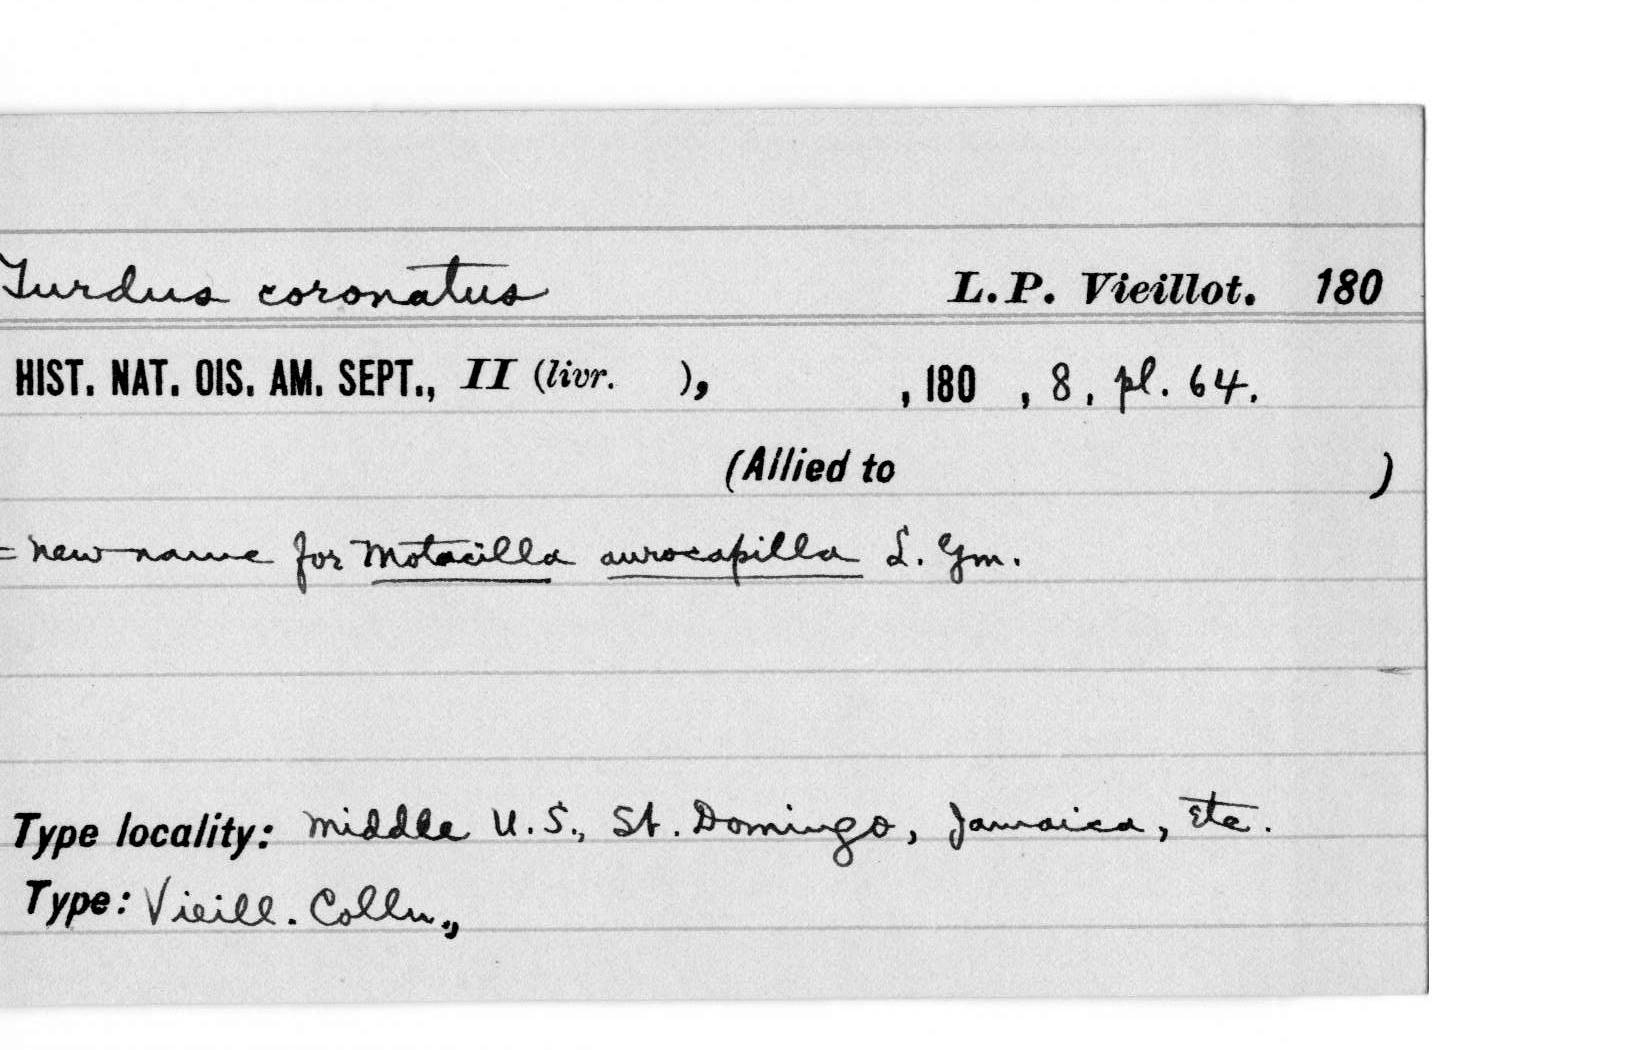 Turdus coronatus L.P. Vieillot. 180
HIST. NAT. OIS. AM. SEPT., II (livr. ), , 180 , 8, pl. 64.
(Allied to )
= new name for Motacilla aurocapilla L. Gm.
Type locality: Middle U.S., St. Domingo, Jamaica, Etc.
Type: Vieill. Colln.,